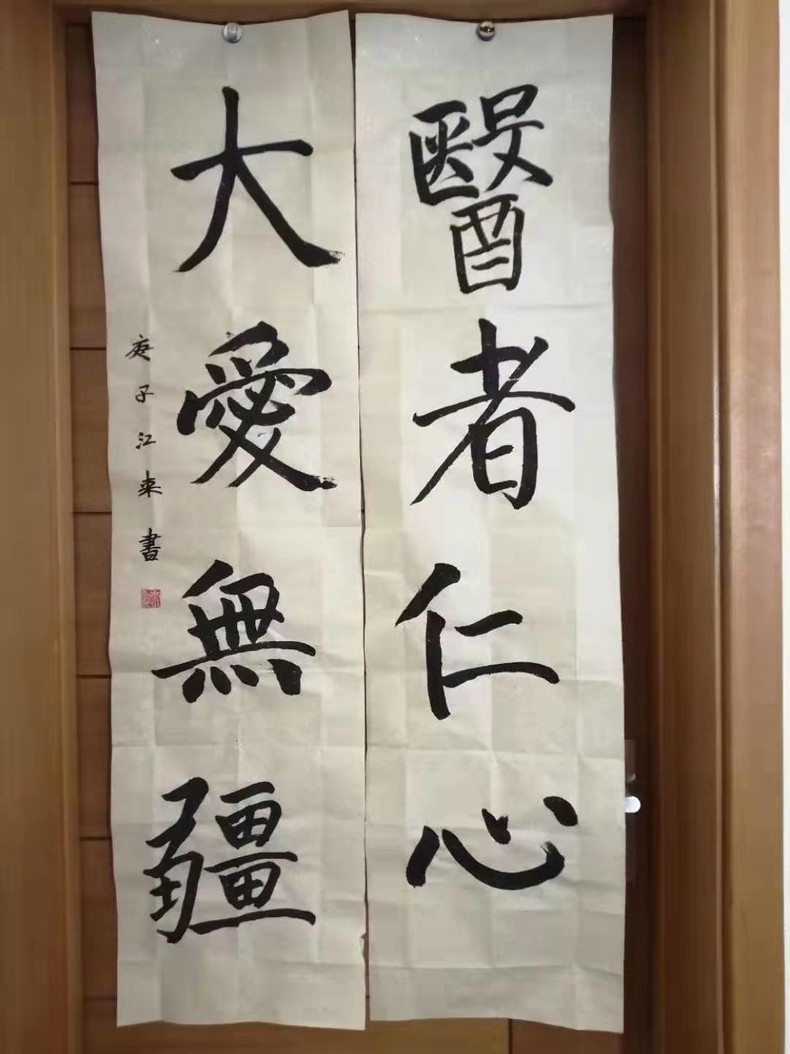 醫者仁心
大愛無疆
庚子江來書